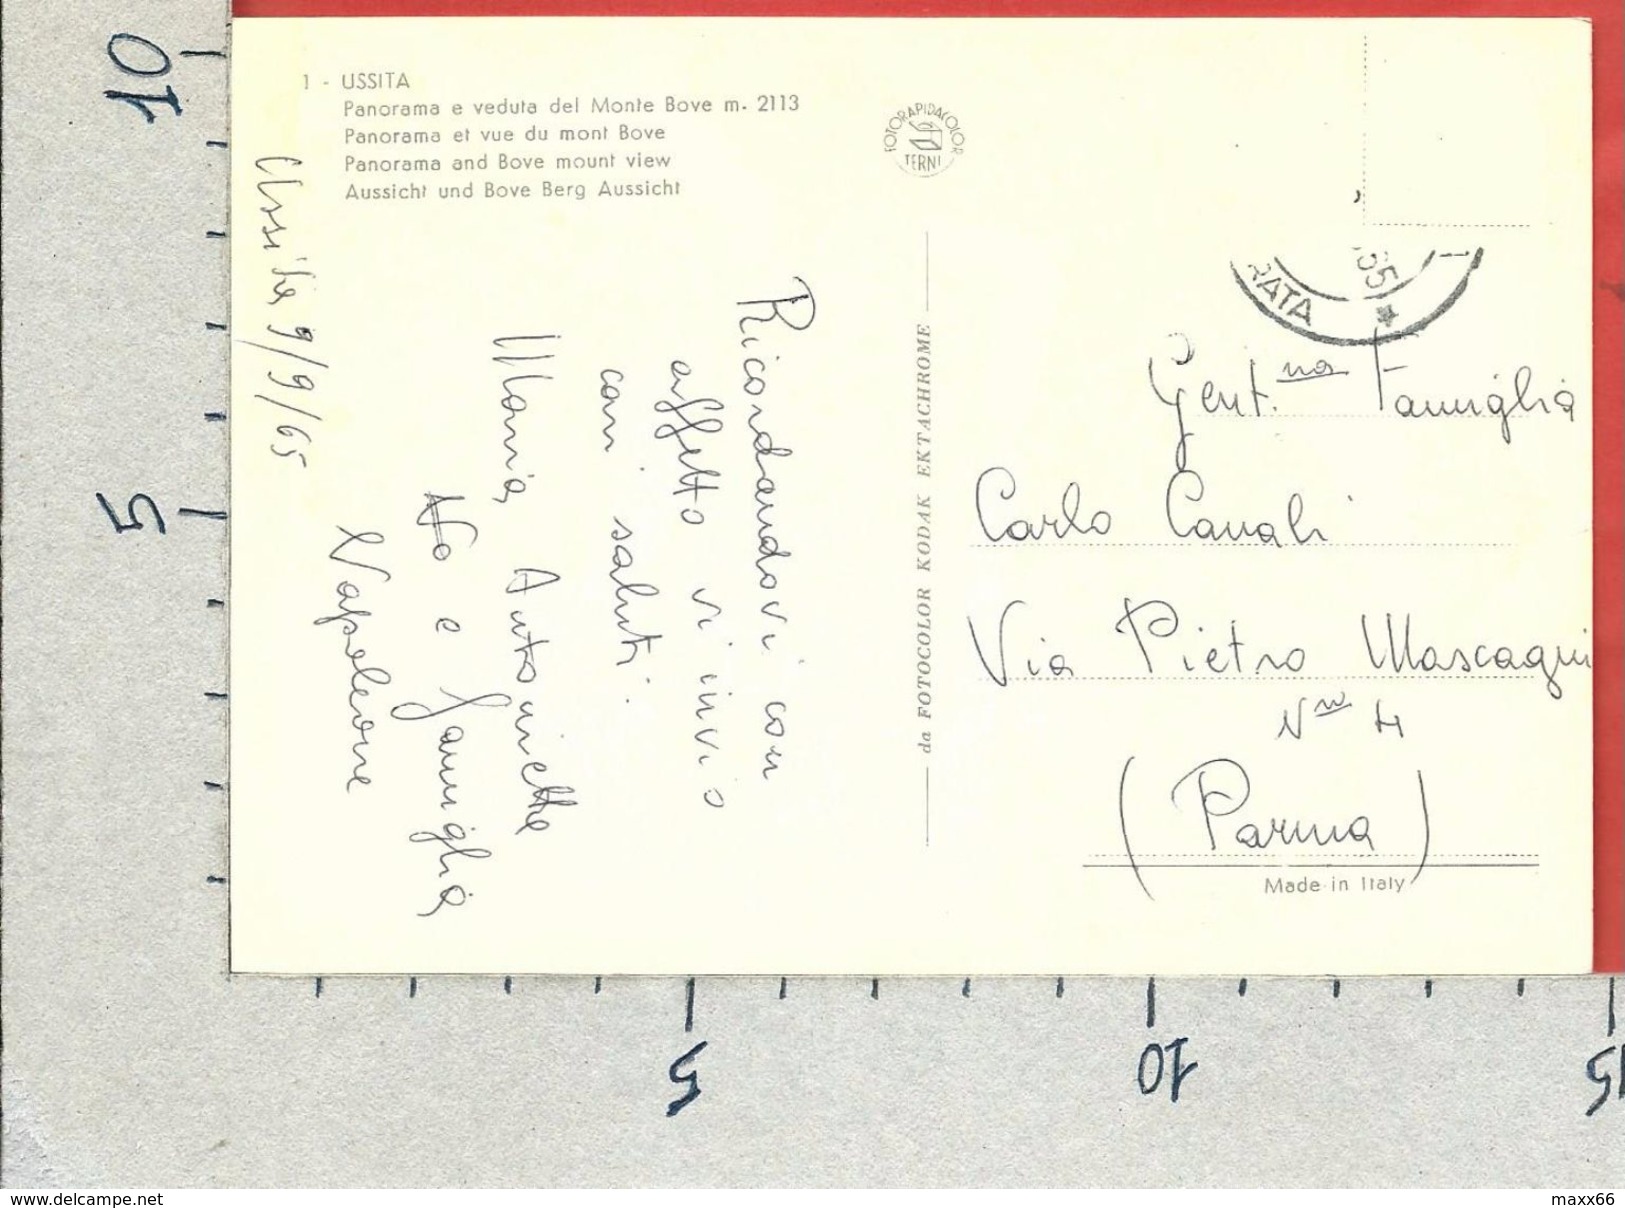 1 - USSITA
Panorama e veduta del Monte Bove m. 2113
Panorama et vue du mont Bove
Panorama and Bove mount view
Aussicht und Bove Berg Aussicht
FOTORAPIDACOLOR
TERNI
Ussita 9/9/65
Ricordandovi con
affetto vi invio
cari saluti.
Maria, Antonietta
e famiglia,
Napoleone
da FOTOCOLOR KODAK EKTACHROME
RATA
65
Gent.ma Famiglia
Carlo Cavalli
Via Pietro Mascagni
Nro 4
(Parma)
Made in Italy
10
5
5
10
15
www.delcampe.net
maxx66